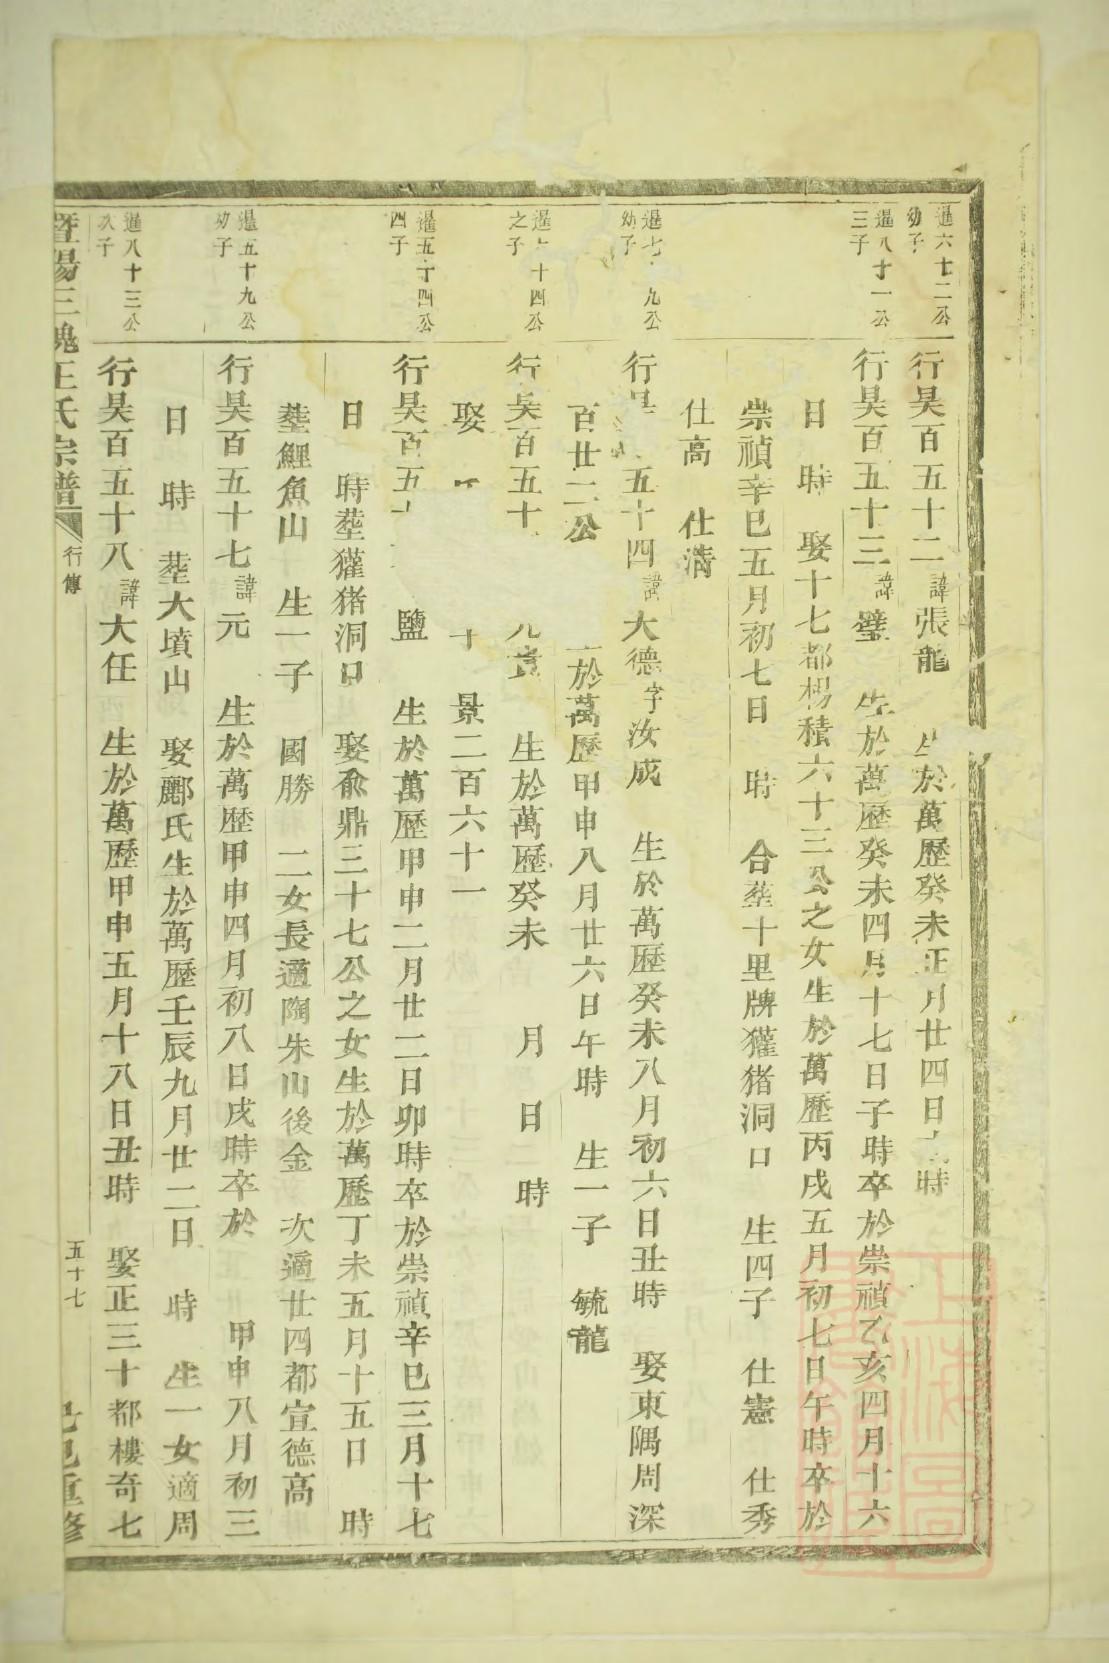 暹六十二公
幼子
行昊百五十二諱張龍 生於萬歷癸未正月廿四日 時
暹八十一公
三子
行昊百五十三諱瑩 生於萬歷癸未四月十七日子時卒於崇禎乙亥四月十六
日 時 娶十七都楊積六十三公之女生於萬歷丙戌五月初七日午時卒於
崇禎辛巳五月初七日 時 合塟十里牌獾猪洞口 生四子 仕憲 仕秀
仕高 仕清
暹七 九公
幼子
行 五十四諱大德字汝成 生於萬歷癸未八月初六日丑時 娶東隅周深
百廿二公 於萬歷甲申八月廿六日午時 生一子 毓龍
暹 十四公
之子
行昊百五十 生於萬歷癸未 月 日 時
娶 十 景二百六十一
暹五十四公
四子
行昊百五 鹽 生於萬歷甲申二月廿二日卯時卒於崇禎辛巳三月十七
日 時塟獾猪洞口 娶俞鼎三十七公之女生於萬歷丁未五月十五日 時
塟鯉魚山 生一子 國勝 二女長適陶朱山後金 次適廿四都宣德高
暹五十九公
幼子
行昊百五十七諱元 生於萬歷甲申四月初八日戌時卒於 甲申八月初三
日 時 塟大墳山 娶酈氏生於萬歷壬辰九月廿二日 時 生一女適周
暹八十三公
次子
行昊百五十八諱大任 生於萬歷甲申五月十八日丑時 娶正三十都樓奇七
暨陽三槐王氏宗譜 行傳 五十七 己巳重修